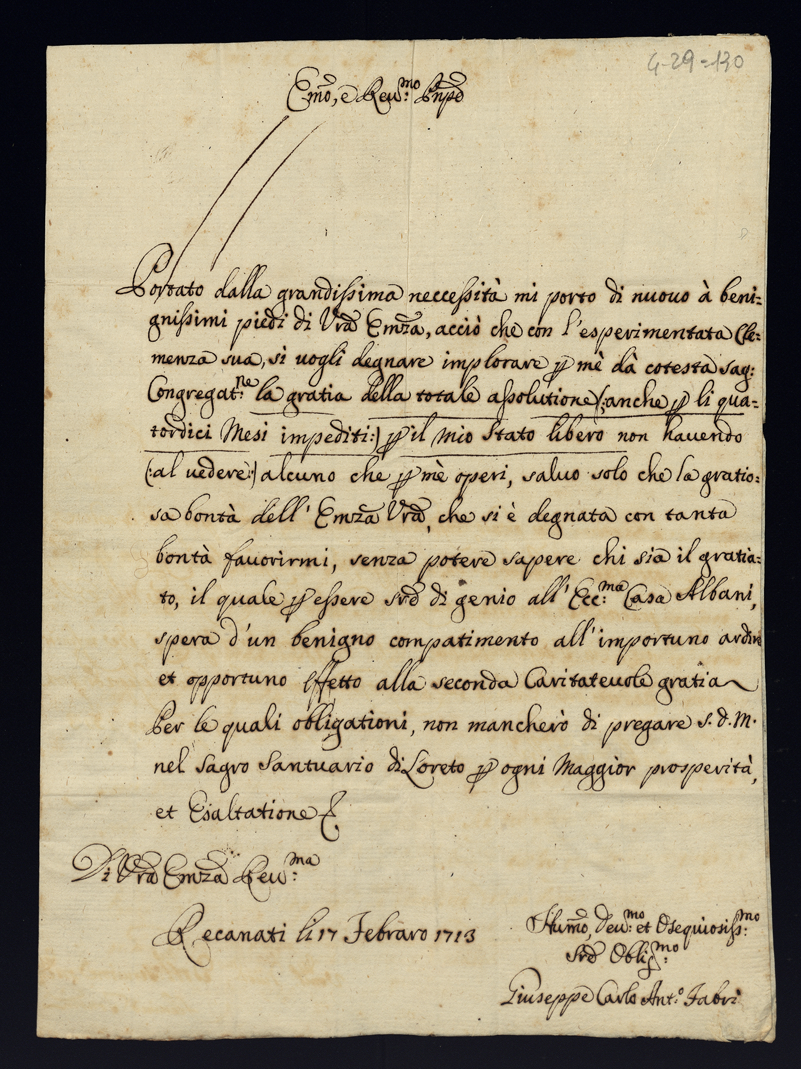 4-29-130
Em̃o, e Reu:mo Pñpe
Portato dalla grandissima neccessità mi porto di nuouo à beni=
gnissimi piedi di Vrã Emz̃a, acciò che con l'esperimentata Cle=
menza sua, si uogli degnare implorare ꝑ mè dà cotesta sag:
Congregat:ne la gratia della totale assolutione (:anche ꝑ li qua=
tordici Mesi impediti:) ꝑ il mio stato libero non hauendo
(:al uedere:) alcuno che ꝑ mè operi, saluo solo che la gratio=
sa bontà dell' Emz̃a Vrã, che si è degnata con tanta
bontà fauorirmi, senza potere sapere chi sia il gratia=
to, il quale ꝑ essere srẽ di genio all' Ecc:ma Casa Albani,
spera d'un benigno compatimento all' importuno ardire
et opportuno effetto alla seconda Caritateuole gratia
Per le quali obligationi, non mancherò di pregare s. d. M.
nel sagro santuario di Loreto ꝑ ogni Maggior prosperità,
et Esaltatione
Di Vrã Emz̃a Reu:ma
Recanati li 17 Febraro 1713
Hum̃o, Deu:mo et Osequiosiss:mo
srẽ Oblig:mo
Giuseppe Carlo Ant:o Fabri